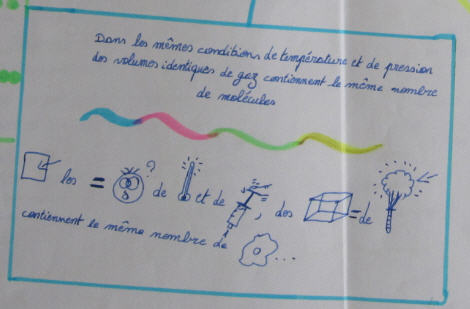 Dans les mêmes conditions de température et de pression
des volumes identiques de gaz contiennent le même nombre
de molécules
les = ? de et de , des = de
contiennent le même nombre de ...